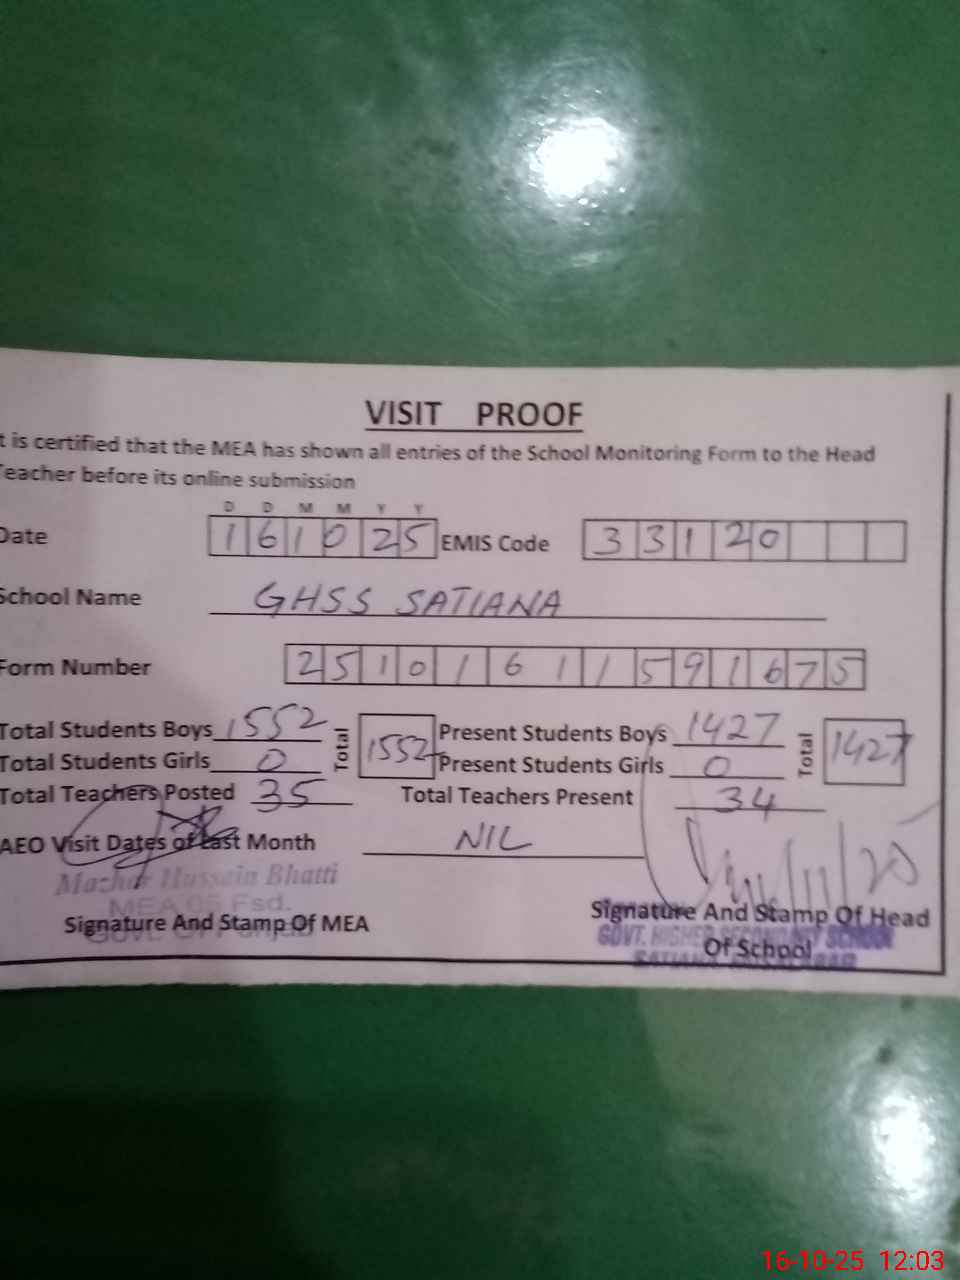 VISIT PROOF
t is certified that the MEA has shown all entries of the School Monitoring Form to the Head
Teacher before its online submission
D D M M Y Y
Date 161025 EMIS Code 33120
School Name GHSS SATIANA
Form Number 25101611591675
Total Students Boys 1552 Total 1552 Present Students Boys 1427 Total 1427
Total Students Girls 0 Present Students Girls 0
Total Teachers Posted 35 Total Teachers Present 34
AEO Visit Dates of Last Month NIL
Mazhar Hussein Bhatti
MEA 05 Fsd.
Signature And Stamp Of MEA Signature And Stamp Of Head
Of School
GOVT. HIGHER SECONDARY SCHOOL
SATIANA
16-10-25 12:03